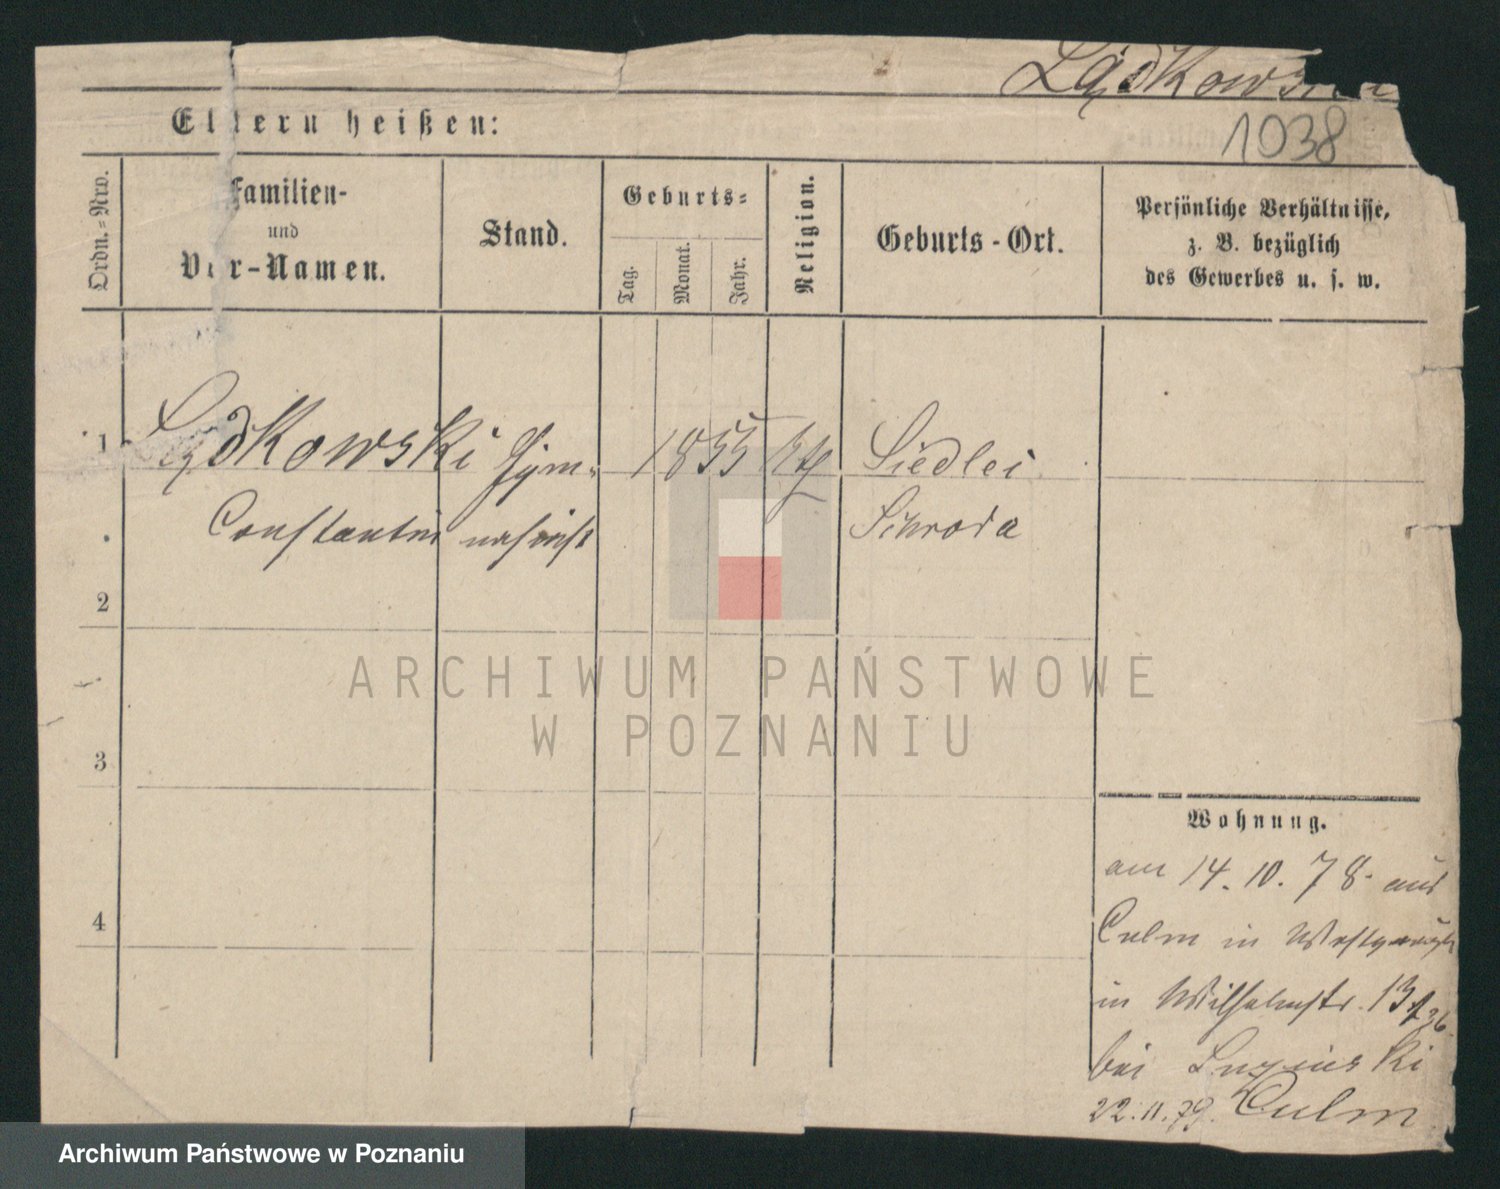 Lądkowski
1038
Eltern heißen:
Ordn.-Nro.
Familien-
und
Vor-Namen.
Stand.
Geburts-
Tag.
Monat.
Jahr.
Religion.
Geburts-Ort.
Persönliche Verhältnisse,
z. B. bezüglich
des Gewerbes u. s. w.
1 Lądkowski Gym- 1855 kth Siedlec
Constantin nasiast Schroda
2
3
4
Wohnung.
am 14.10.78. aus
Culm in Westpreuß
in Wilhelmstr. 13
bei
22.11.79. Culm
ARCHIWUM PAŃSTWOWE
W POZNANIU
Archiwum Państwowe w Poznaniu